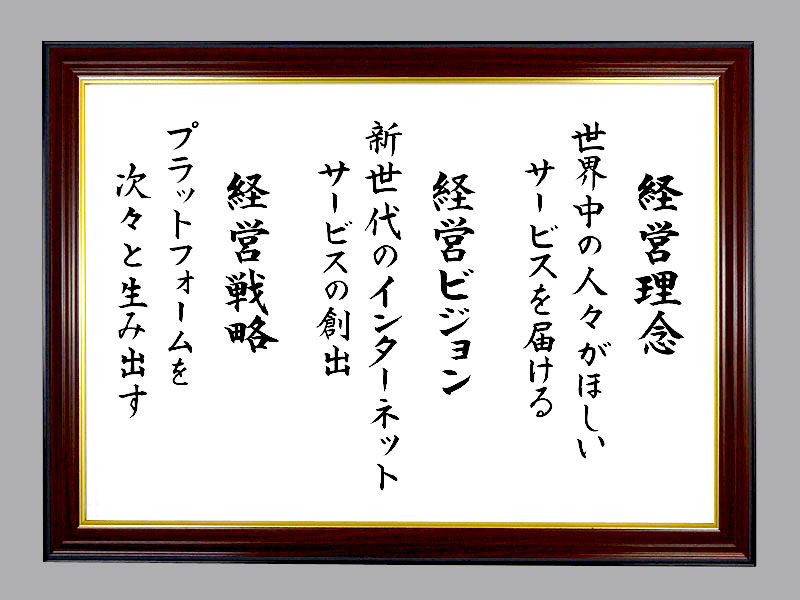 経営理念
世界中の人々がほしい
サービスを届ける
経営ビジョン
新世代のインターネット
サービスの創出
経営戦略
プラットフォームを
次々と生み出す